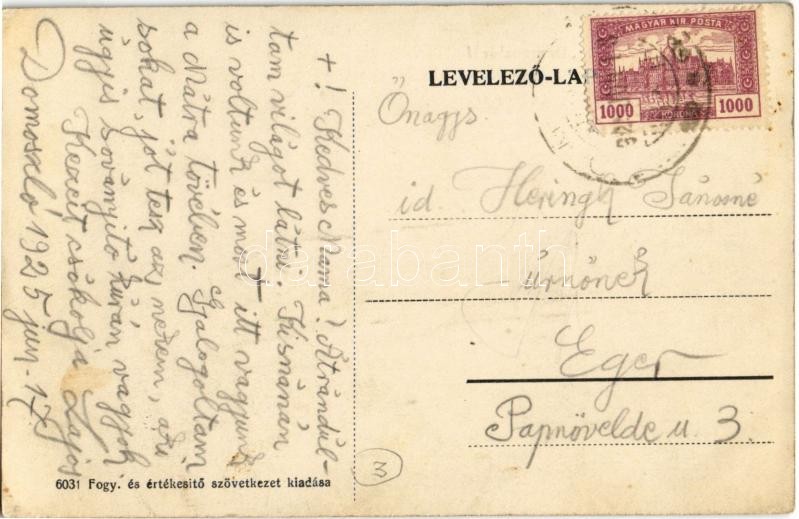 LEVELEZŐ-LAP
MAGYAR KIR. POSTA
1000 1000
KORONA
Őnagys.
id. Heringh Jánosné
úrnőnek
Eger
Papnövelde u 3.
+! Kedves Mama! Átrándúl-
tam világot látni. Kisnánán
is voltunk és most itt vagyunk
a Mátra tövében. Gyalogoltam
sokat, jót tesz az nekem, aki
úgyis soványító kúrán vagyok
Kezeit csókolja Lajos
Domoszló 1925 jun. 17
3
6031 Fogy. és értékesitő szövetkezet kiadása
darabanth